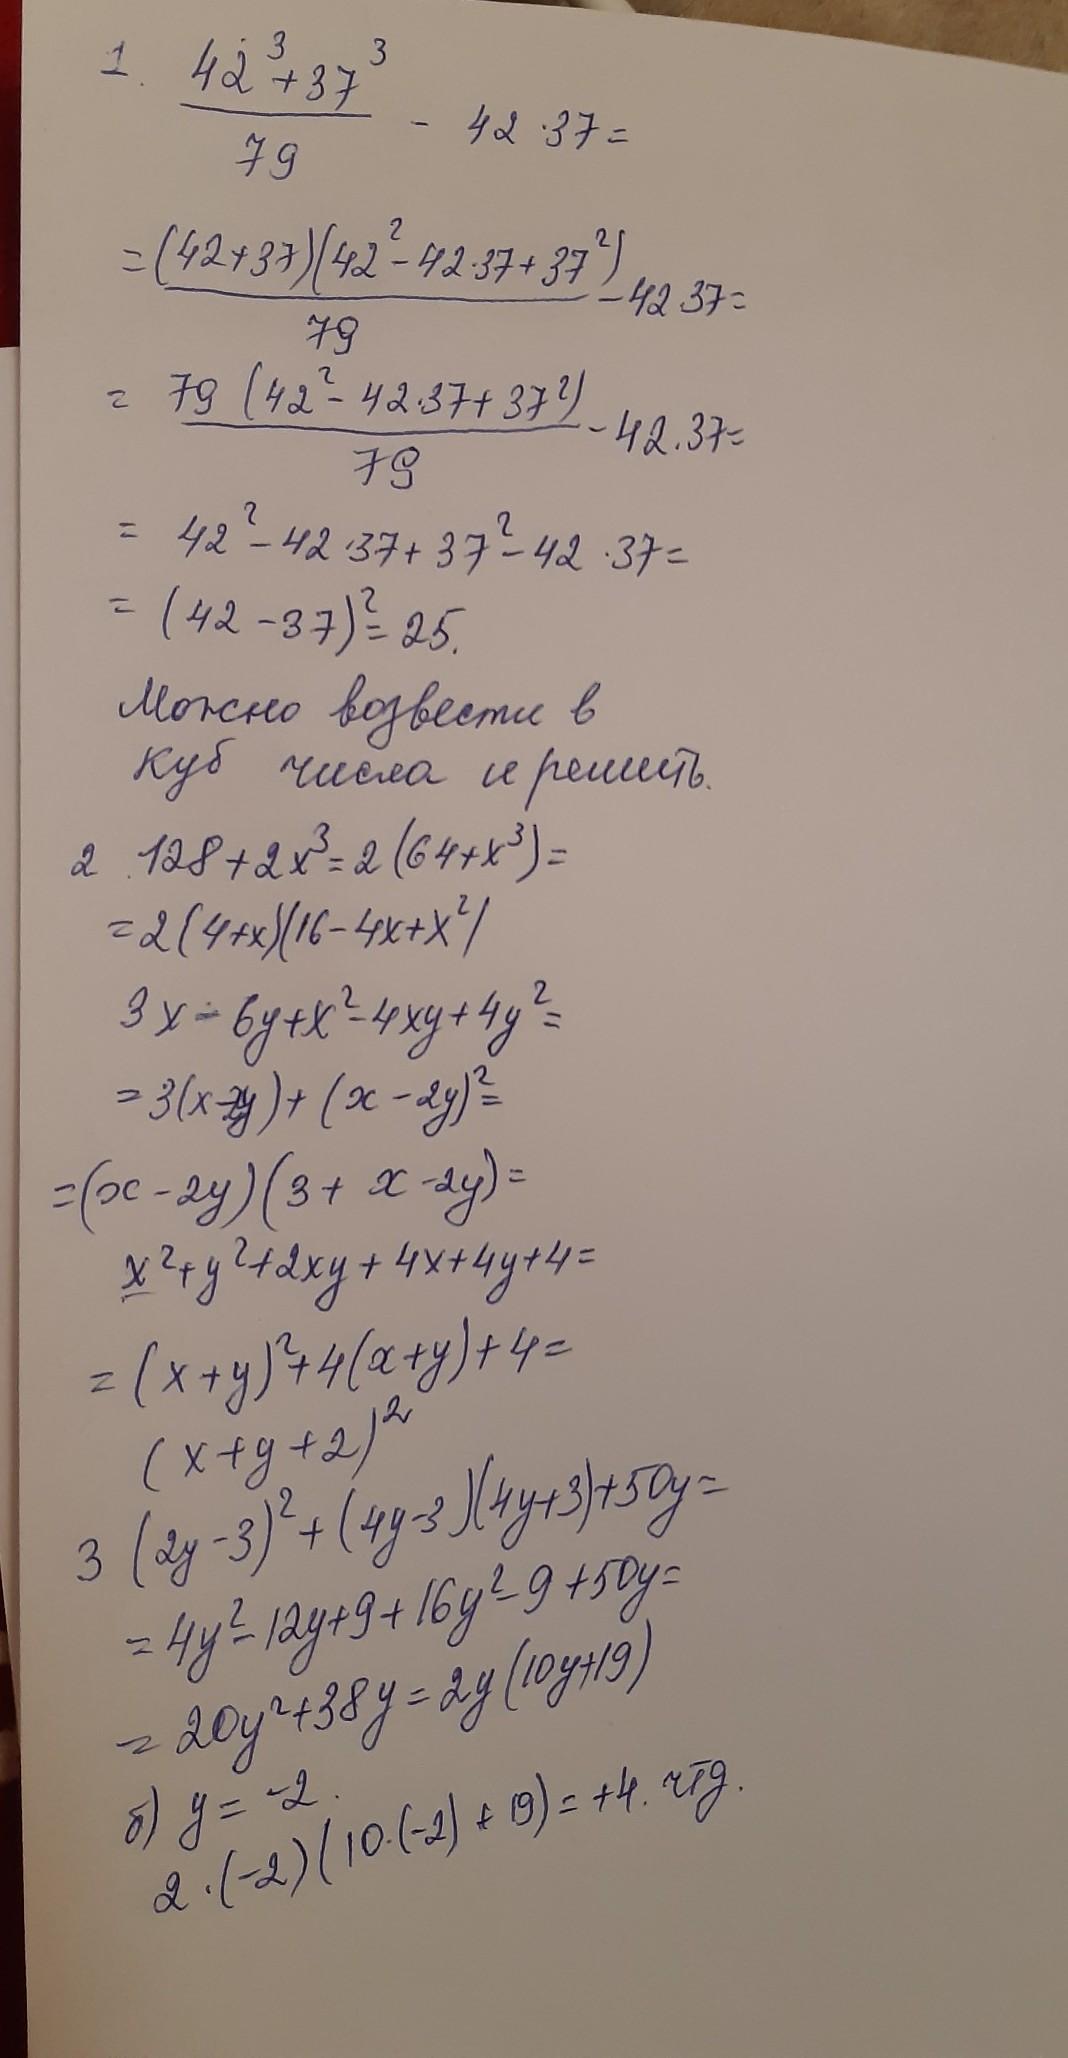 1. (42³+37³)/79 - 42·37=
=(42+37)(42²-42·37+37²)/79 -42·37=
= 79(42²-42·37+37²)/79 -42·37=
= 42²-42·37+37²-42·37=
= (42-37)²=25.
Можно возвести в
куб числа и решить.
2. 128+2x³=2(64+x³)=
=2(4+x)(16-4x+x²)
3x-6y+x²-4xy+4y²=
=3(x-2y)+(x-2y)²=
=(x-2y)(3+x-2y)=
x²+y²+2xy+4x+4y+4=
=(x+y)²+4(x+y)+4=
(x+y+2)²
3 (2y-3)²+(4y-3)(4y+3)+50y=
=4y²-12y+9+16y²-9+50y=
= 20y²+38y=2y(10y+19)
б) y= -2.
2·(-2)(10·(-2)+19)=+4. чтд.